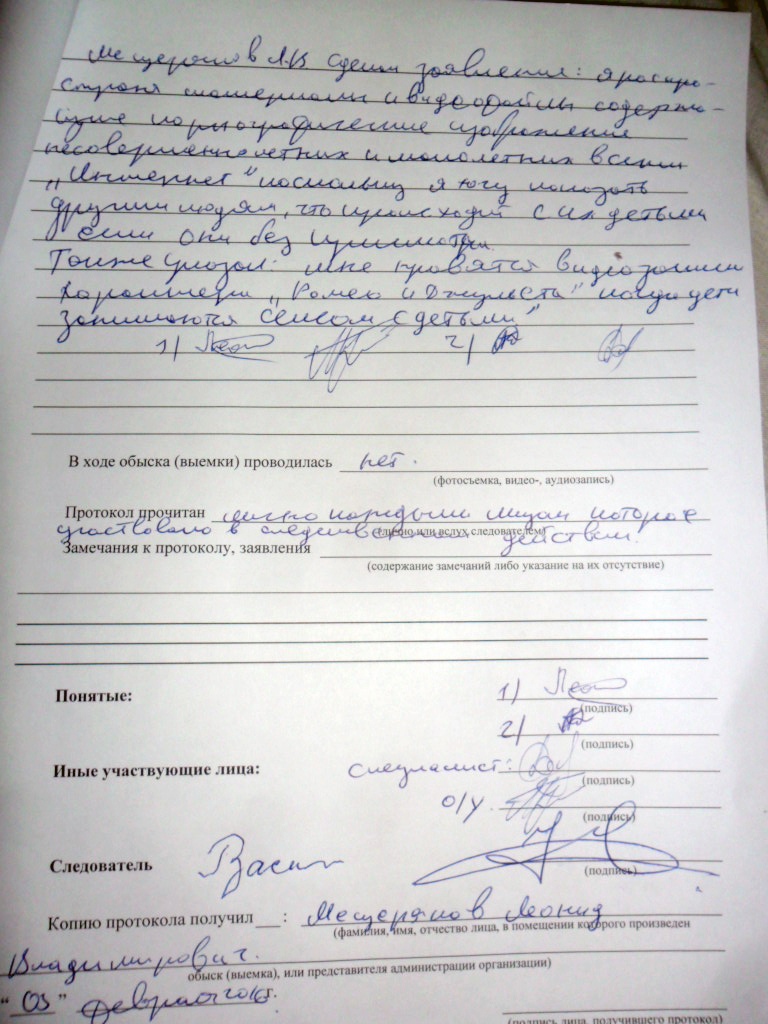 Мещеряков Л.В. сделал заявления: я распро-
страня материалы и видеофайлы содержа-
щие порнографические изображения
несовершеннолетних и малолетних в сети
„Интернет" поскольку я хочу показать
другим людям, что происходит с их детьми
если они без присмотра.
Также указал: мне нравятся видеозаписи
характера „Ромео и Джульета" когда дети
занимаются сексом с детьми"
1/ 2/
В ходе обыска (выемки) проводилась нет.
(фотосъемка, видео-, аудиозапись)
Протокол прочитан лично каждым лицом которое
участвовало в следственном действии.
(лично или вслух следователем)
Замечания к протоколу, заявления
(содержание замечаний либо указание на их отсутствие)
Понятые: 1/
(подпись)
2/
(подпись)
Иные участвующие лица: специалист:
(подпись)
о/у
(подпись)
Следователь
(подпись)
Копию протокола получил __: Мещеряков Леонид
(фамилия, имя, отчество лица, в помещении которого произведен
Владимирович.
обыск (выемка), или представителя администрации организации)
"03" февраля г.
(подпись лица, получившего протокол)